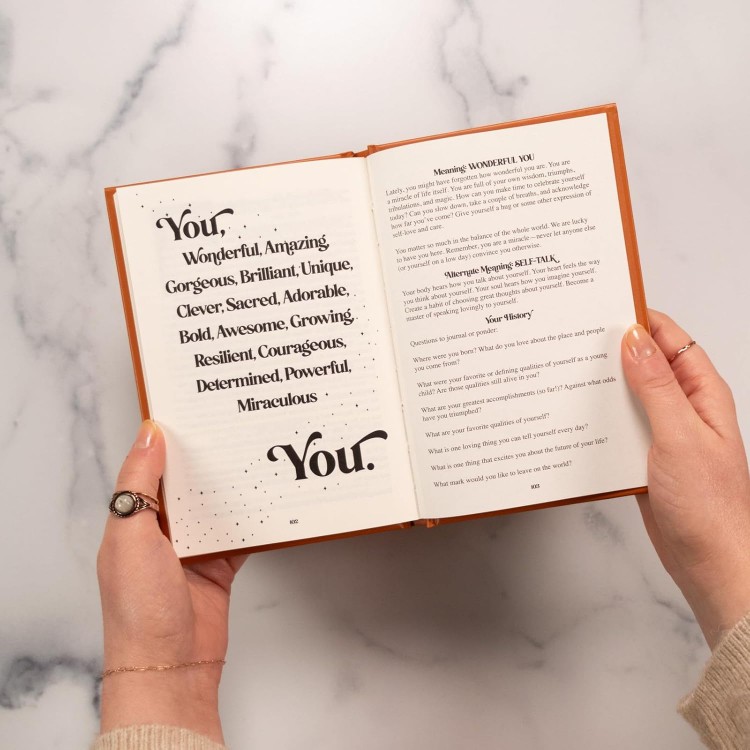 You,
Wonderful, Amazing,
Gorgeous, Brilliant, Unique,
Clever, Sacred, Adorable,
Bold, Awesome, Growing,
Resilient, Courageous,
Determined, Powerful,
Miraculous
You.
102
Meaning: WONDERFUL YOU
Lately, you might have forgotten how wonderful you are. You are
a miracle of life itself. You are full of your own wisdom, triumphs,
tribulations, and magic. How can you make time to celebrate yourself
today? Can you slow down, take a couple of breaths, and acknowledge
how far you've come? Give yourself a hug or some other expression of
self-love and care.
You matter so much in the balance of the whole world. We are lucky
to have you here. Remember, you are a miracle – never let anyone else
(or yourself on a low day) convince you otherwise.
Alternate Meaning: SELF-TALK
Your body hears how you talk about yourself. Your heart feels the way
you think about yourself. Your soul hears how you imagine yourself.
Create a habit of choosing great thoughts about yourself. Become a
master of speaking lovingly to yourself.
Your History
Questions to journal or ponder:
Where were you born? What do you love about the place and people
you come from?
What were your favorite or defining qualities of yourself as a young
child? Are those qualities still alive in you?
What are your greatest accomplishments (so far!)? Against what odds
have you triumphed?
What are your favorite qualities of yourself?
What is one loving thing you can tell yourself every day?
What is one thing that excites you about the future of your life?
What mark would you like to leave on the world?
103